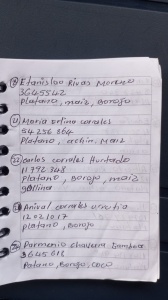 Etanislao Rivas Moreno
3645542
Platano, maiz, Borojo
21 Maria orfina corrales
54 256 864
Platano, achin, Maiz
22 carlos corrales Hurtado
11 792 348
platano, Borojo, maiz
gallina
Anival corrales urrutia
12 02 10 17
platano, Borojo
Parmenio chaverra Gamboa
3645618
Patano, Borojo, coco